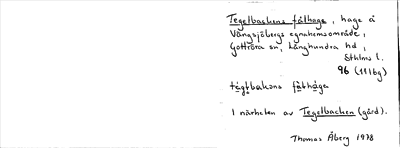 Tegelbackens fåthage, hage å
Vängsjöbergs egnahemsområde,
Gottröra sn, Långhundra hd,
Sthlms l.
96 (11I6g)
tégtbakəns fåthåga
I närheten av Tegelbacken (gård).
Thomas Åberg 1978